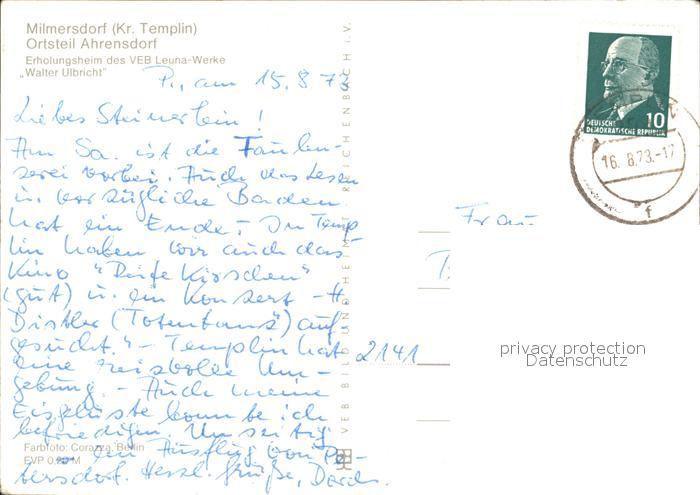 Milmersdorf (Kr. Templin)
Ortsteil Ahrensdorf
Erholungsheim des VEB Leuna-Werke
„Walter Ulbricht"
P., am 15.8.73
Liebes Steinerlein!
Am Sa. ist die Faulen-
zerei vorbei. Auch das Lesen
u. vorzügliche Baden
hat ein Ende. In Temp
lin haben wir auch das
Kino "Reife Kirschen"
(gut) u. ein Konzert - H
Distler (Totentanz) auf
gesucht. - Templin hat
eine reizvolle Um-
gebung. - Auch meine
Eisgelüste konnte ich
befriedigen. Umseitig
ein Ausflug von
Herzl. Grüße,
Farbfoto: Corazza, Berlin
EVP 0,20 M
VEB BILD UND HEIMAT REICHENBACH i. V.
DEUTSCHE
DEMOKRATISCHE REPUBLIK
10
16. 8.73.-17
f
Frau
2141
privacy protection
Datenschutz